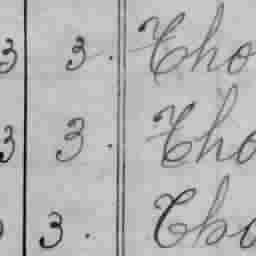 3 3. Tho
3 3. Tho
3. Tho